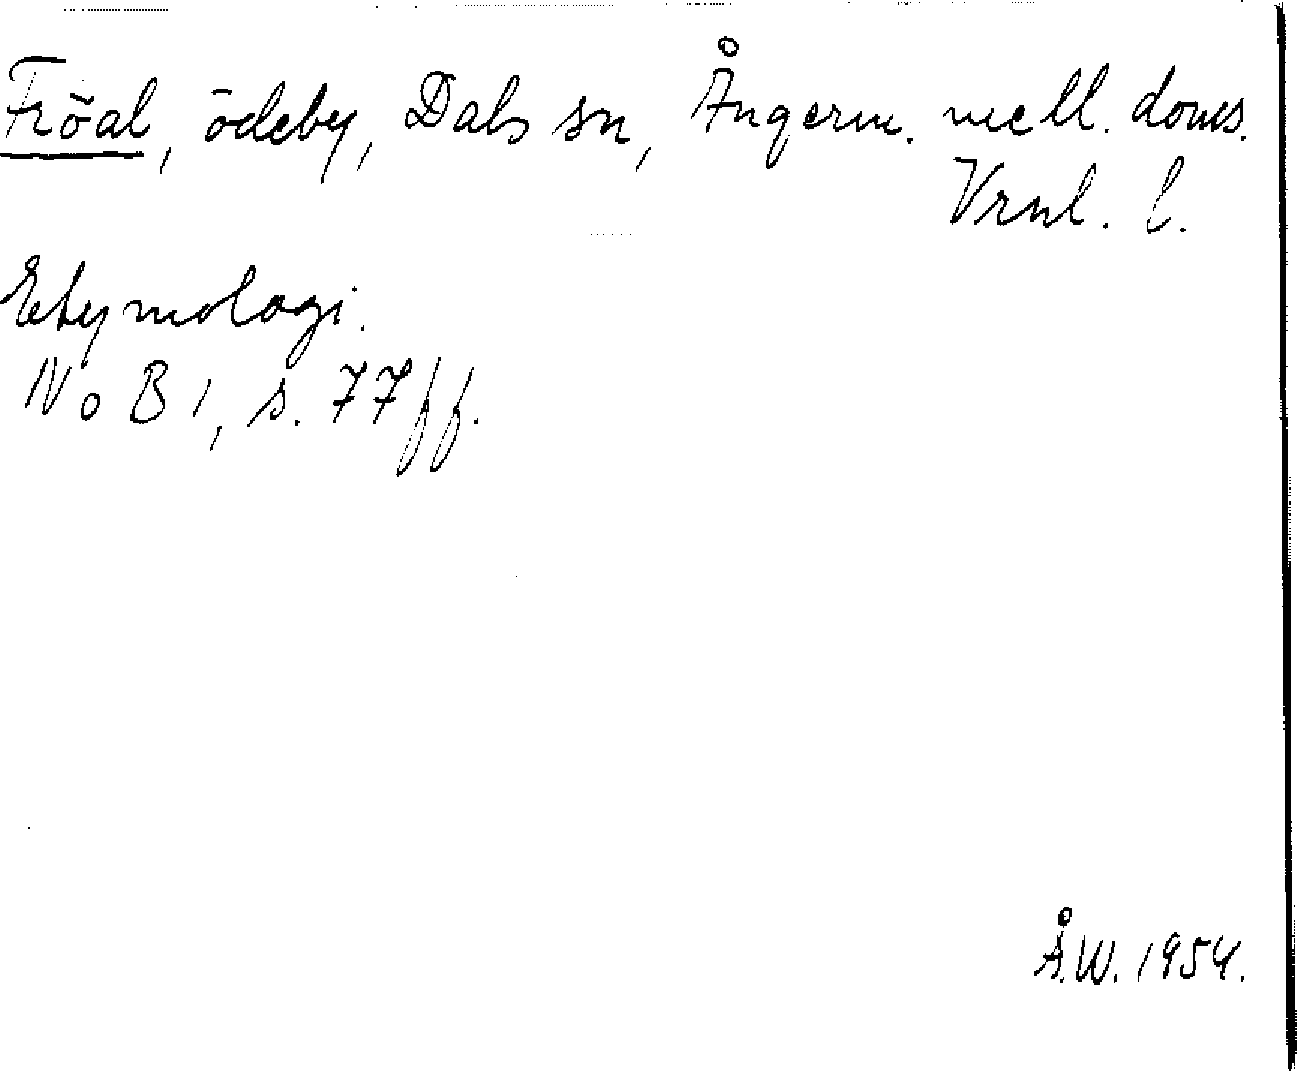 Fröal, ödeby, Dals sn, Ångerm. mell. doms.
Vrnl. l.
Etymologi.
NoB 1, s. 77ff.
Å.W. 1954.